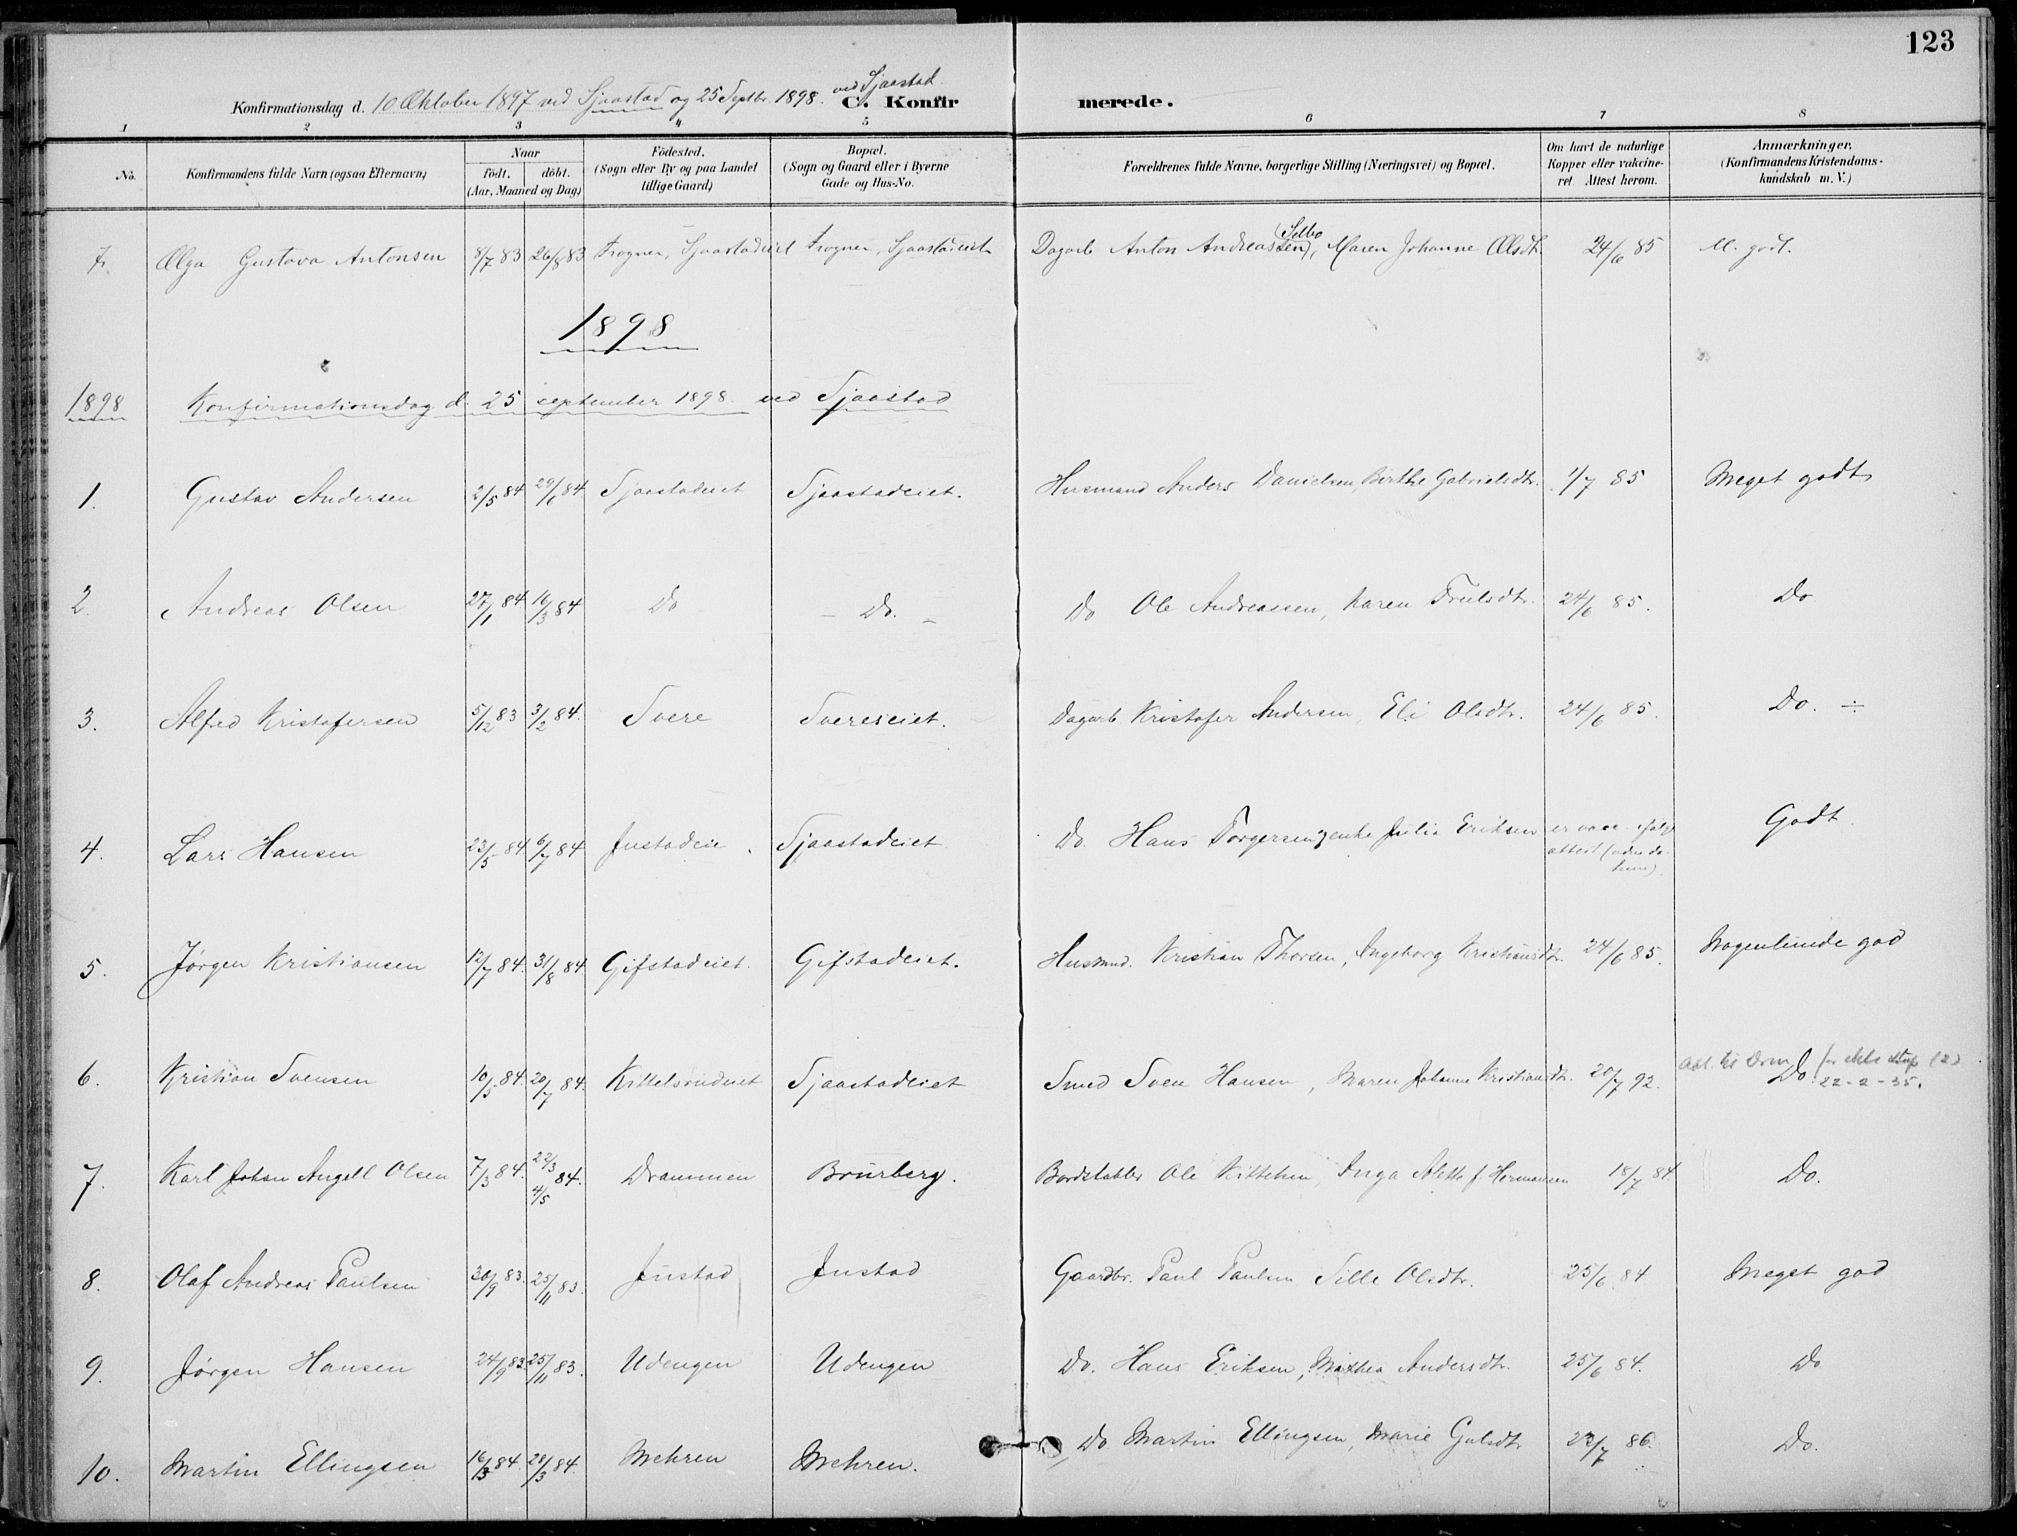 123
Konfirmationsdag d. 10 Oktober 1897 ved Sjaastad og 25 Septbr. 1898. ved Sjaastad C. Konfirmerede.
1 2 3 4 5 6 7 8
No. Konfirmandens fulde Navn (ogsaa Efternavn) Naar födt. döbt. (Aar, Maaned og Dag) Födested. (Sogn eller By og paa Landet tillige Gaard) Bopæl. (Sogn og Gaard eller i Byerne Gade og Hus-No. Forældrenes fulde Navne, borgerlige Stilling (Næringsvei) og Bopæl. Om havt de naturlige Kopper eller vakcineret. Attest herom. Anmærkninger. (Konfirmandens Kristendomskundskab m. V.)
7. Olga Gustava Antonsen 8/7 83 26/8 83 Frogner, Sjaastadeiet Frogner, Sjaastadeiet Dagarb Anton Andreassen, Maren Johanne Olsdt. 24/6 85 M. godt.
1898
1898 Konfirmationsdag d. 25 september 1898 ved Sjaastad
1. Gustav Andersen 2/5 84 29/6 84 Sjaastadeiet Sjaastadeiet. Husmand Anders Danielsen, Birthe Gabrielsdtr. 1/7 85 Meget godt
2. Andreas Olsen 27/1 84 16/3 84 Do - Do. - Do Ole Andreassen, Karen Trulsdtr. 24/6 85. Do
3. Alfred Kristofersen 5/12 83 3/2 84. Svere Svereseiet. Dagarb. Kristofer Andersen, Eli Olsdtr. 24/6 85. Do. ÷
4. Lars Hansen 23/5 84 6/7 84 Justadeie. Sjaastadeiet Do. Hans Torgersen, Julia Eriksen er vacc. attest Godt.
5. Jørgen Kristiansen 12/7 84. 31/8 84 Gifstadeiet. Gifstadeiet. Husmnd. Kristian Thorsen, Ingeborg Kristiansdtr. 24/6 85. Nogenlunde god
6. Kristian Svensen 10/5 84. 20/7 84. Kittelsrudeiet Sjaastadeiet Smed Sven Hansen, Maren Johanne Kristiansdtr. 20/7 92. Do. 22-2-35.
7. Karl Johan Angell Olsen 7/3 84. 22/3 4/5 84. Drammen Brurberg. Bordstabler Ole Kittelsen, Inga Aletta f. Hermansen 18/7 84. Do.
8. Olaf Andreas Paulsen 30/9 83. 25/11 83. Justad Justad Gaardbr. Paul Paulsen Sille Olsdtr. 25/6 84 Meget god
9. Jørgen Hansen 24/9 83. 25/11 83. Udengen Udengen Do. Hans Eriksen, Mathea Andersdtr. 25/6 84. Do
10. Martin Ellingsen 16/3 84. 28/3 84. Mehren Mehren. Do Martin Ellingsen, Marie Gulsdtr 23/7 86. Do.